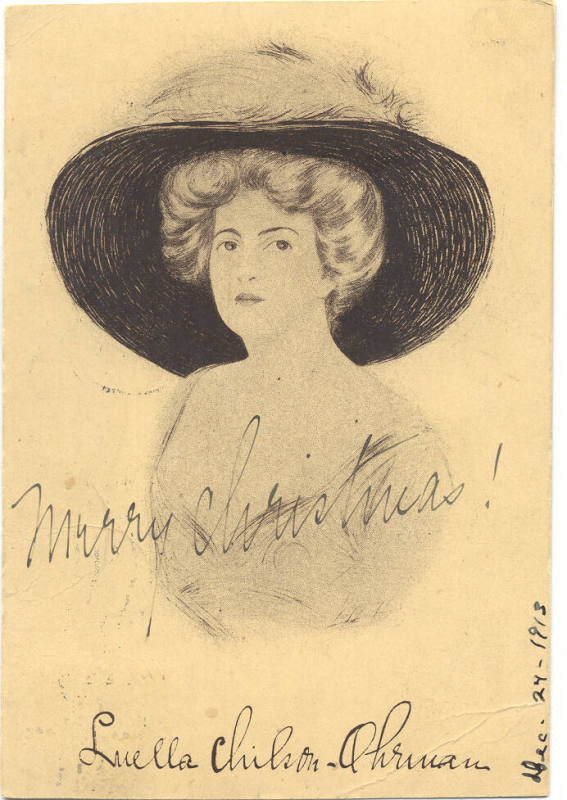 Merry Christmas!
Luella Chilson-Ohrman
Dec. 24-1913